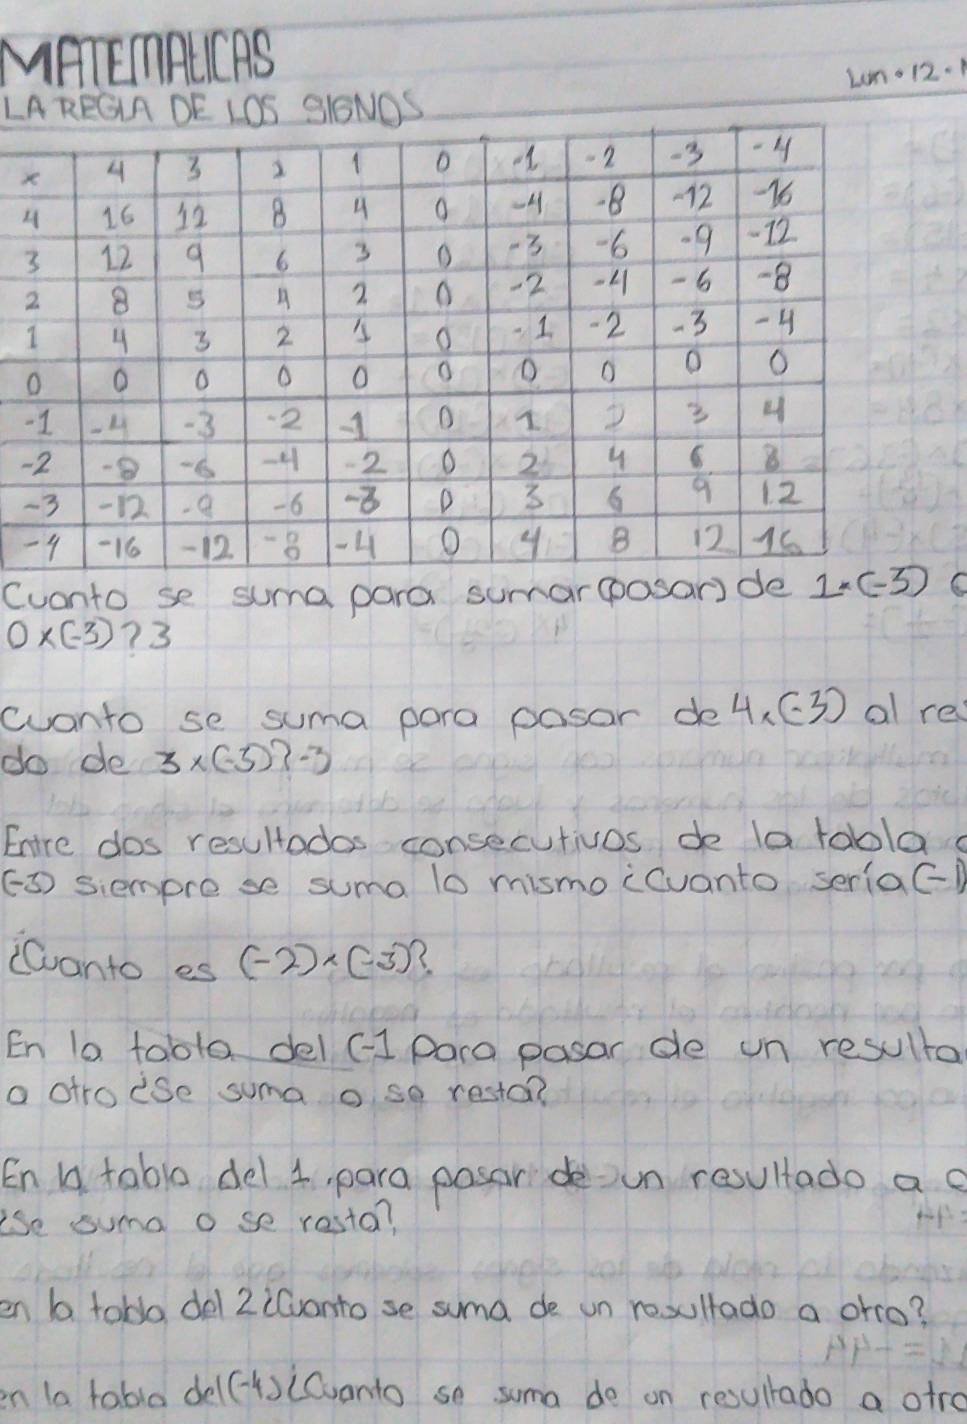 MATEMATICAS
Lun • 12 •
LA REGLA DE LOS SIGNOS
x 4 3 2 1 0 -1 -2 -3 -4
4 16 12 8 4 0 -4 -8 -12 -16
3 12 9 6 3 0 -3 -6 -9 -12
2 8 5 4 2 0 -2 -4 -6 -8
1 4 3 2 1 0 -1 -2 -3 -4
0 0 0 0 0 0 0 0 0 0
-1 -4 -3 -2 -1 0 1 2 3 4
-2 -8 -6 -4 -2 0 2 4 6 8
-3 -12 -9 -6 -3 0 3 6 9 12
-4 -16 -12 -8 -4 0 4 8 12 16
Cuanto se suma para sumar (pasar) de 1×(-3)
0×(-3)? 3
cuanto se suma para pasar de 4×(-3) al res
do de 3×(-3)? -3
Entre dos resultados consecutivos de la tabla
(-3) siempre se suma lo mismo ¿Cuanto sería (-1)
¿Cuanto es (-2)×(-3)?
En la tabla del (-1 para pasar de un resulta
a otro ¿Se suma o se resta?
En la tabla del 1 para pasar de un resultado a o
¿Se suma o se resta?
en la tabla del 2 ¿Cuanto se suma de un resultado a otro?
en la tabla del (-4) ¿Cuanto se suma de un resultado a otro